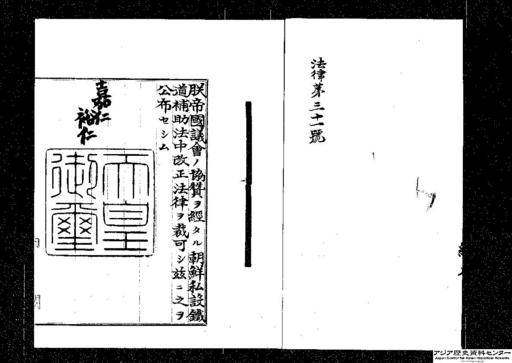 法律第三十一號
朕帝國議會ノ協贊ヲ經タル朝鮮私設鐵
道補助法中改正法律ヲ裁可シ玆ニ之ヲ
公布セシム
嘉仁
裕仁
天皇
御璽
アジア歴史資料センター
Japan Center for Asian Historical Records